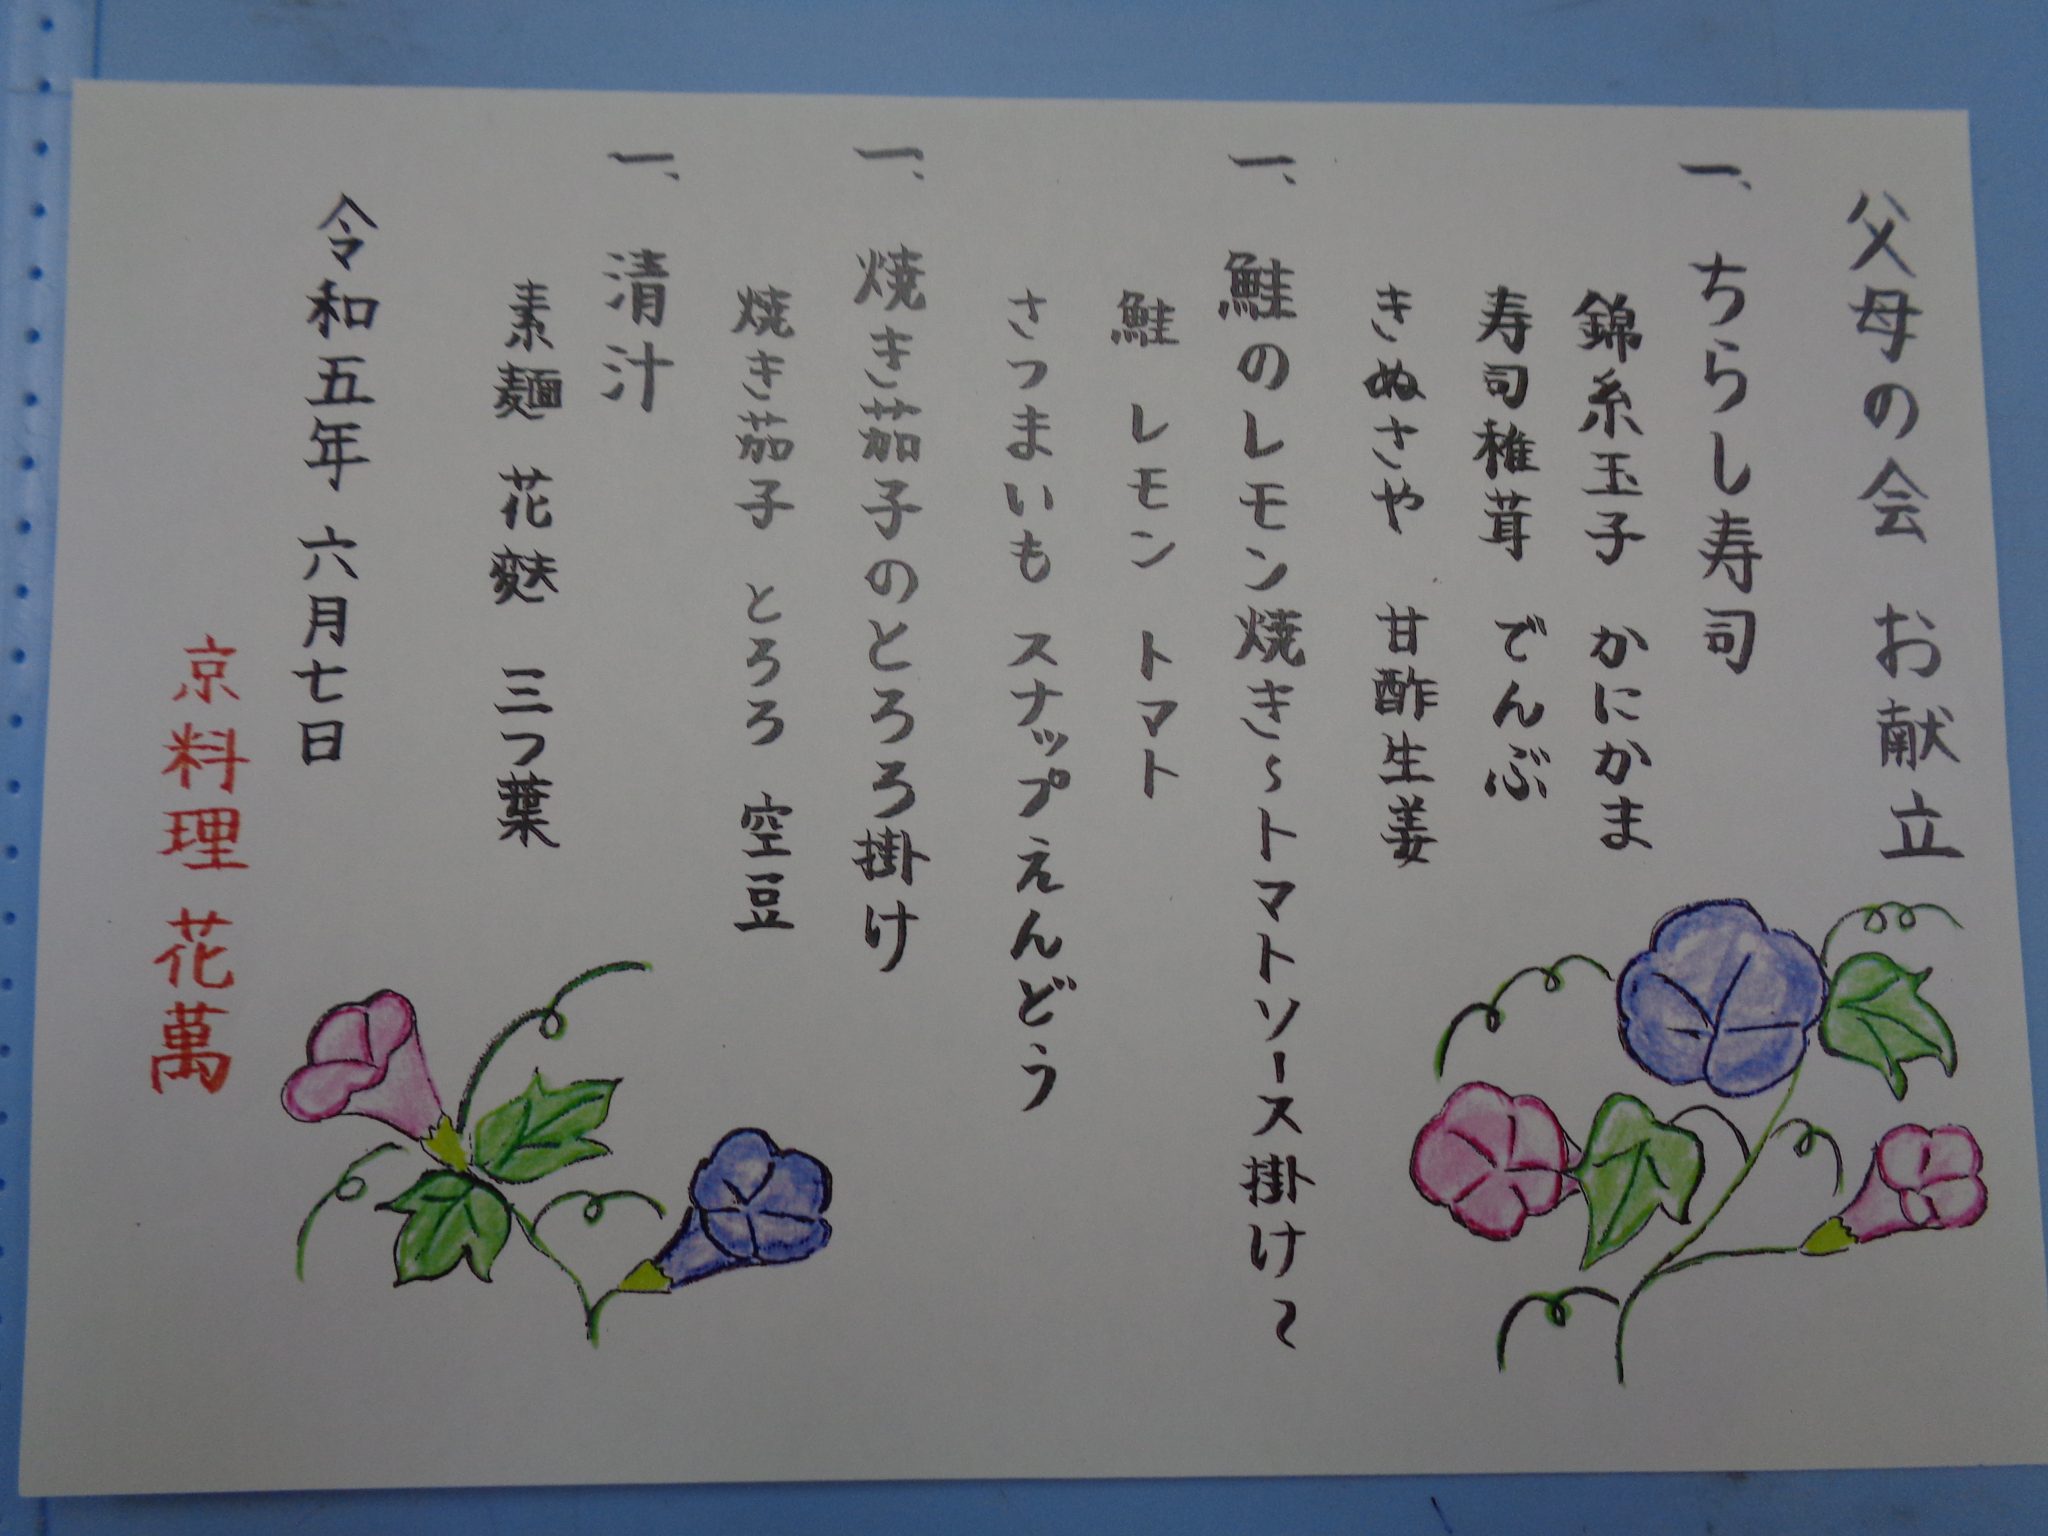 父母の会 お献立
一、ちらし寿司
錦糸玉子 かにかま
寿司椎茸 でんぶ
きぬさや 甘酢生姜
一、鮭のレモン焼き～トマトソース掛け～
鮭 レモン トマト
さつまいも スナップえんどう
一、焼き茄子のとろろ掛け
焼き茄子 とろろ 空豆
一、清汁
素麺 花麩 三つ葉
令和五年 六月七日
京料理 花萬